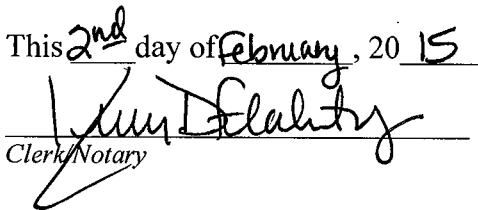 This 2nd day of February, 20 15
Clerk/Notary